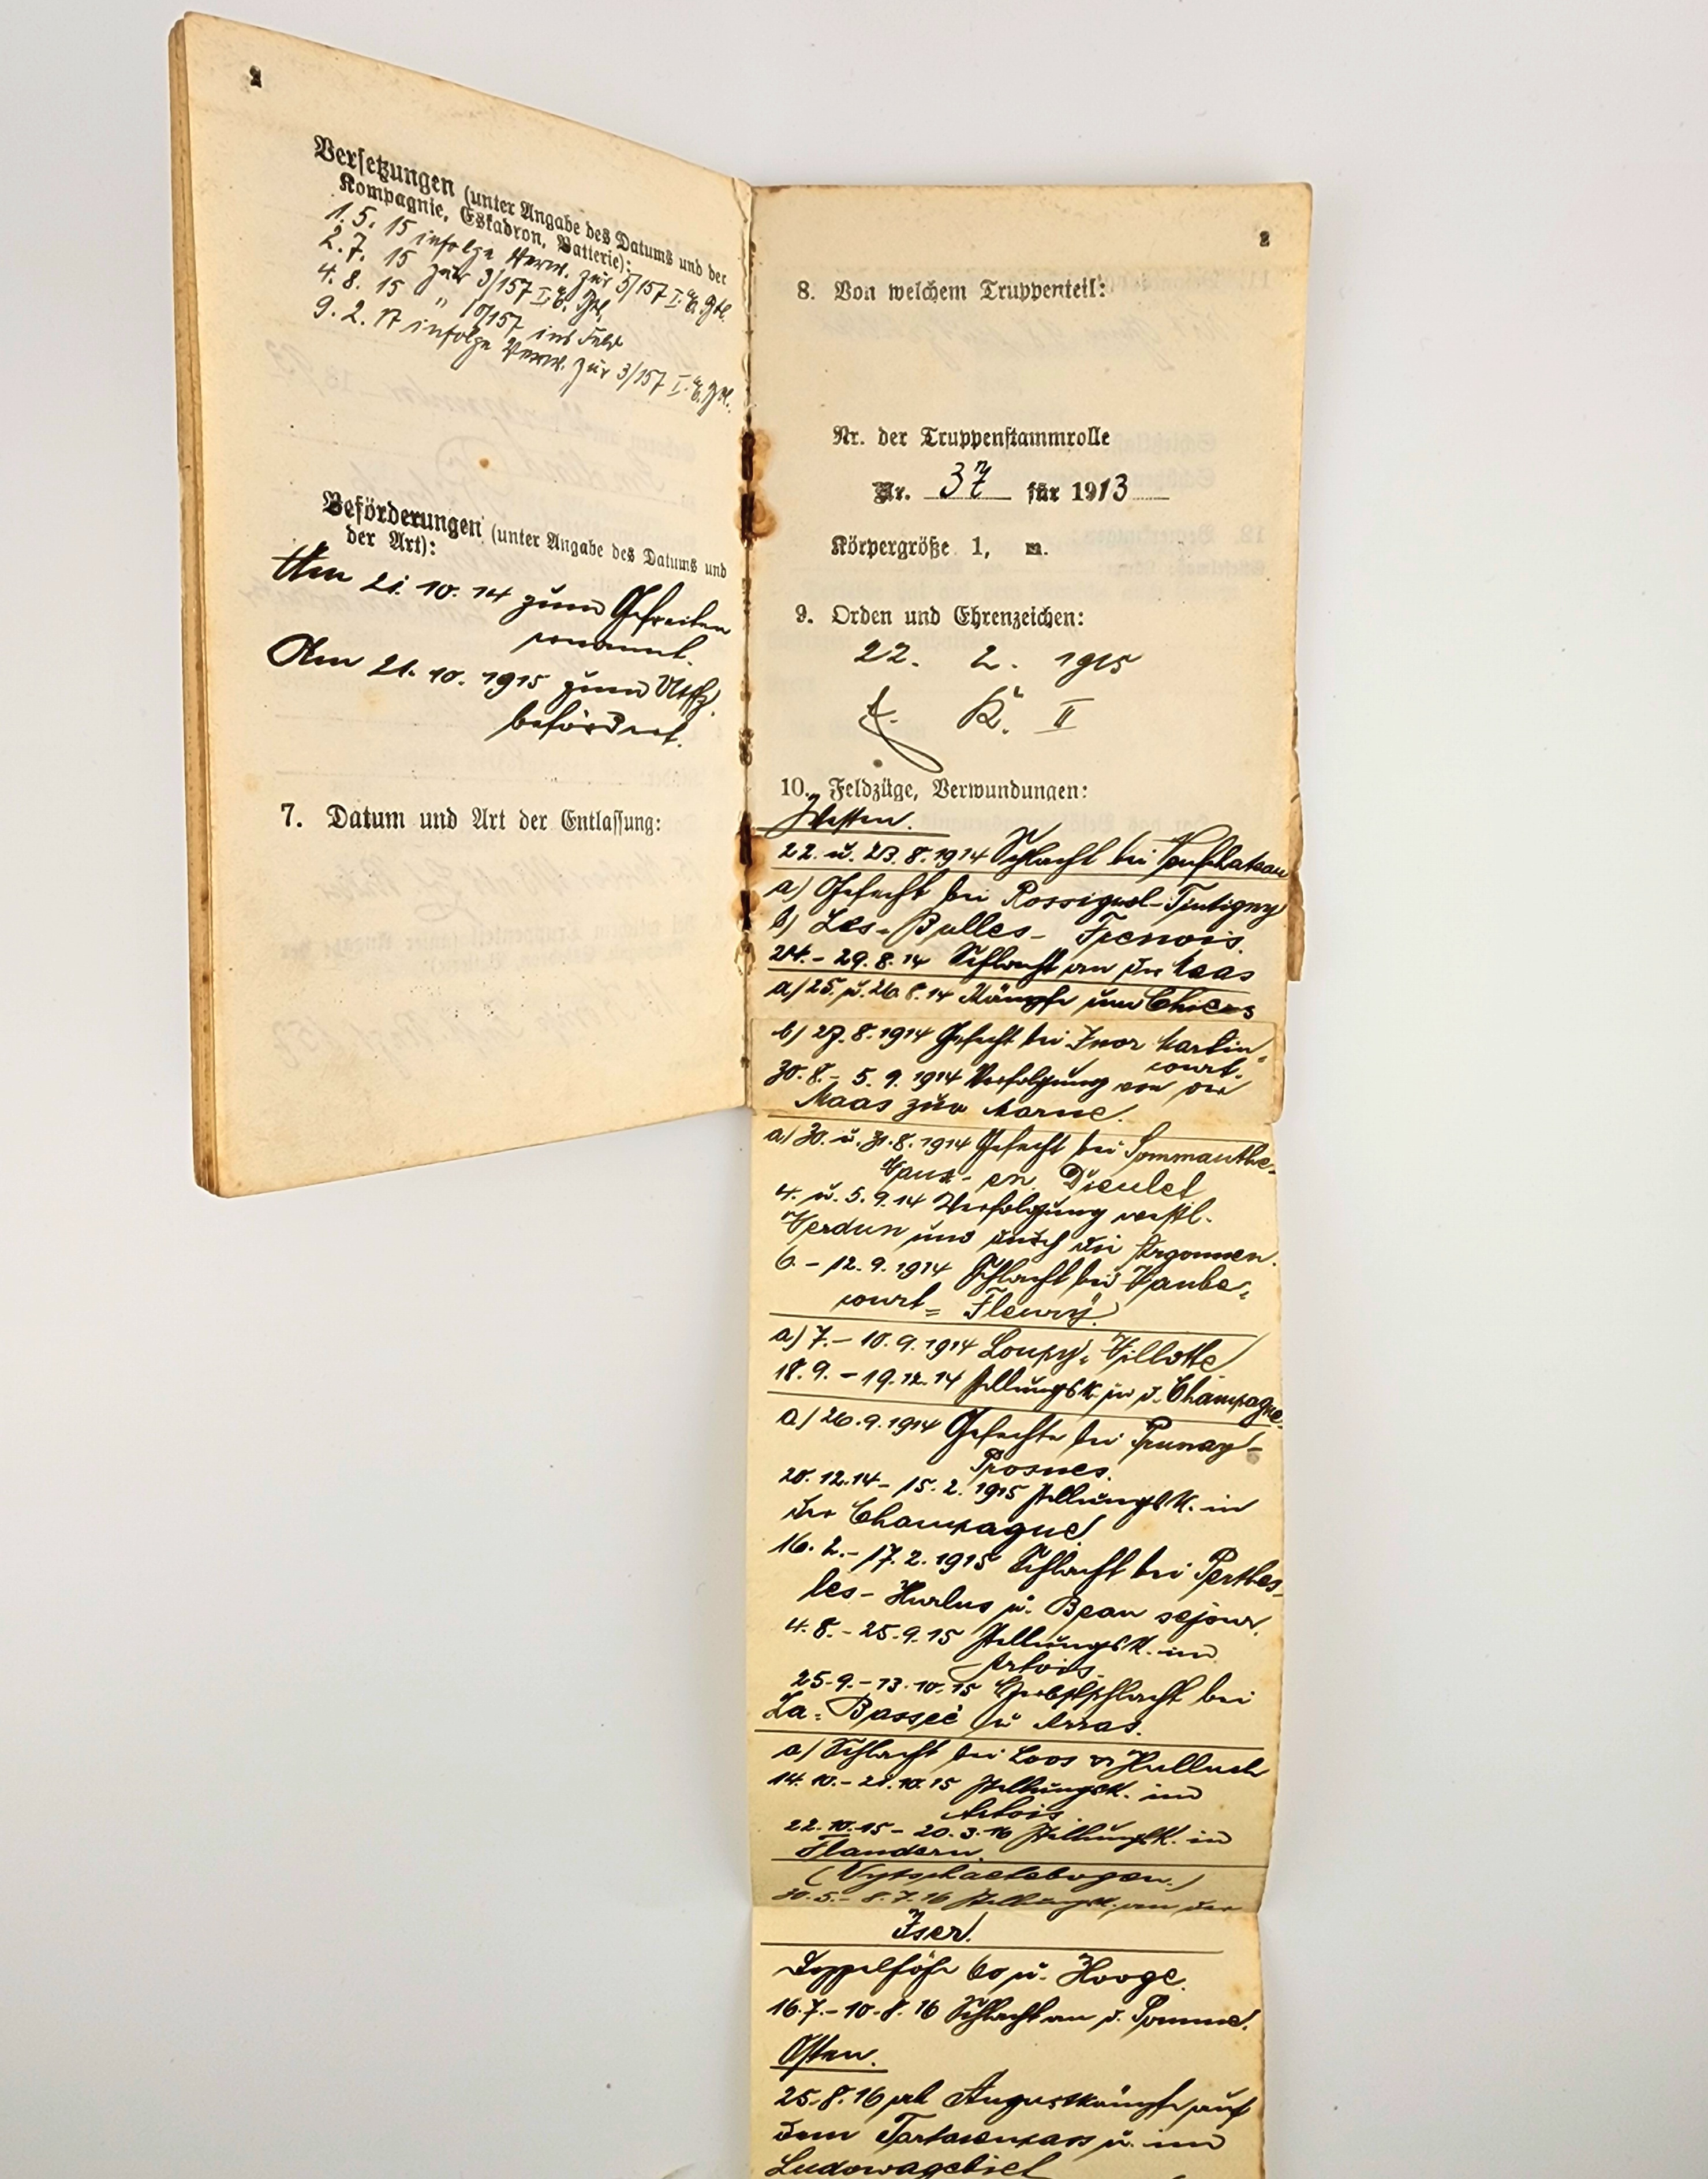 2
Versetzungen (unter Angabe des Datums und der
Kompagnie, Eskadron, Batterie):
1. 5. 15 infolge Verw. zur 5/157 I. E. Btl.
2. 7. 15 zur 3/157 I. E. Btl.
4. 8. 15 " 10/157 ins Feld
9. 2. 17 infolge Verw. zur 3/157 I. E. Btl.
Beförderungen (unter Angabe des Datums und
der Art):
Am 21. 10. 14 zum Gefreiten
ernannt.
Am 21. 10. 1915 zum Utffz.
befördert.
7. Datum und Art der Entlassung:
2
8. Von welchem Truppenteil:
Nr. der Truppenstammrolle
Nr. 37 für 1913
Körpergröße 1, m.
9. Orden und Ehrenzeichen:
22. 2. 1915
E. K. II
10. Feldzüge, Verwundungen:
Westen.
22. u. 23. 8. 1914 Schlacht bei Neufchateau
a) Gefecht bei Rossignol-Tintigny
b) Les-Bulles-
24. - 29. 8. 14 Schlacht an der Maas
a) 25. u. 26. 8. 14 Kämpfe um Chiers
b) 27. 8. 1914 Gefecht bei Inor Martin-
court.
30. 8. - 5. 9. 1914 Verfolgung von der
Maas zur Marne.
a) 30. u. 31. 8. 1914 Gefecht bei Sommauthe-
Vaux-en Dieulet
4. u. 5. 9. 14 Verfolgung westl.
Verdun und durch die Argonnen.
6. - 12. 9. 1914 Schlacht bei Vaube-
court-Fleury.
a) 7. - 10. 9. 1914 Louppy-Villotte
18. 9. - 19. 12. 14 Stellungsk. in d. Champagne.
a) 26. 9. 1914 Gefechte bei Prunay-
Prosnes.
20. 12. 14 - 15. 2. 1915 Stellungsk. in
der Champagne.
16. 2. - 17. 2. 1915 Schlacht bei Perthes-
les-Hurlus u. Beau sejour.
4. 8. - 25. 9. 15 Stellungsk. im
Artois.
25. 9. - 13. 10. 15 Herbstschlacht bei
La-Bassée u Arras.
a) Schlacht bei Loos u Hulluch
14. 10. - 21. 10. 15 Stellungsk. im
Artois.
22. 10. 15 - 20. 3. 16 Stellungsk. in
Flandern.
(Wytschaetebogen.)
30. 5. - 8. 7. 16 Stellungsk. an der
Iser.
Doppelhöhe 60 u. Hooge.
16. 7. - 10. 8. 16 Schlacht an d. Somme.
Osten.
25. 8. 16 ab Augustkämpfe auf
dem Tartarenpass u. im
Ludowagebiet